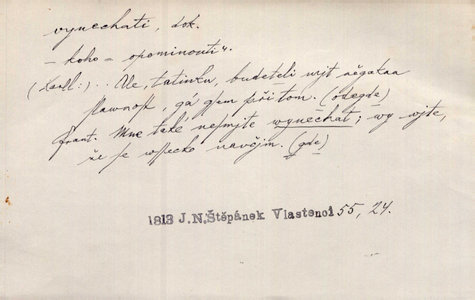 vynechati, dok.
– koho = opominouti".
(Karll:) .. Ale, tatinku, budeteli mjt nĕgakau
slawnost, gá gsem při tom. (odegde)
Frant. Mne také nesmjte wynechat; wy wjte,
že se wssecko naučjm. (gde)
1813 J.N.Štěpánek Vlastenci 55, 24.